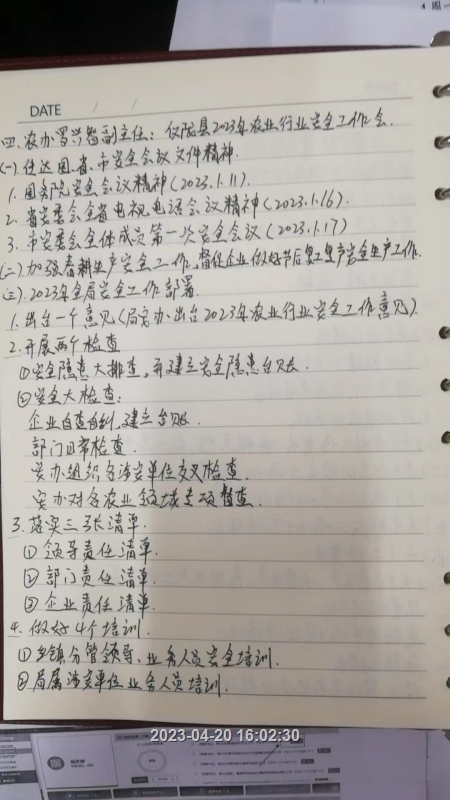 DATE / /
四、农办罗兴智副主任：仪陇县2023年农业行业安全工作会.
(一)、传达国、省、市安全会议文件精神.
1. 国务院安全会议精神(2023.1.11).
2. 省安委会全省电视电话会议精神(2023.1.16).
3. 市安委会全体成员第一次安全会议(2023.1.17)
(二)加强春耕生产安全工作,督促企业做好节后复工复产安全生产工作.
(三)、2023年全局安全工作部署.
1. 出台一个意见(局安办出台2023年农业行业安全工作意见).
2. 开展两个检查
①安全隐患大排查,并建立安全隐患台账.
②安全大检查:
企业自查自纠,建立台账.
部门日常检查.
安办组织各涉安单位交叉检查.
安办对各农业领域专项督查.
3. 落实三张清单.
① 领导责任清单.
② 部门责任清单.
③ 企业责任清单.
4. 做好4个培训.
①乡镇分管领导、业务人员安全培训.
②局属涉安单位业务人员培训.
2023-04-20 16:02:30